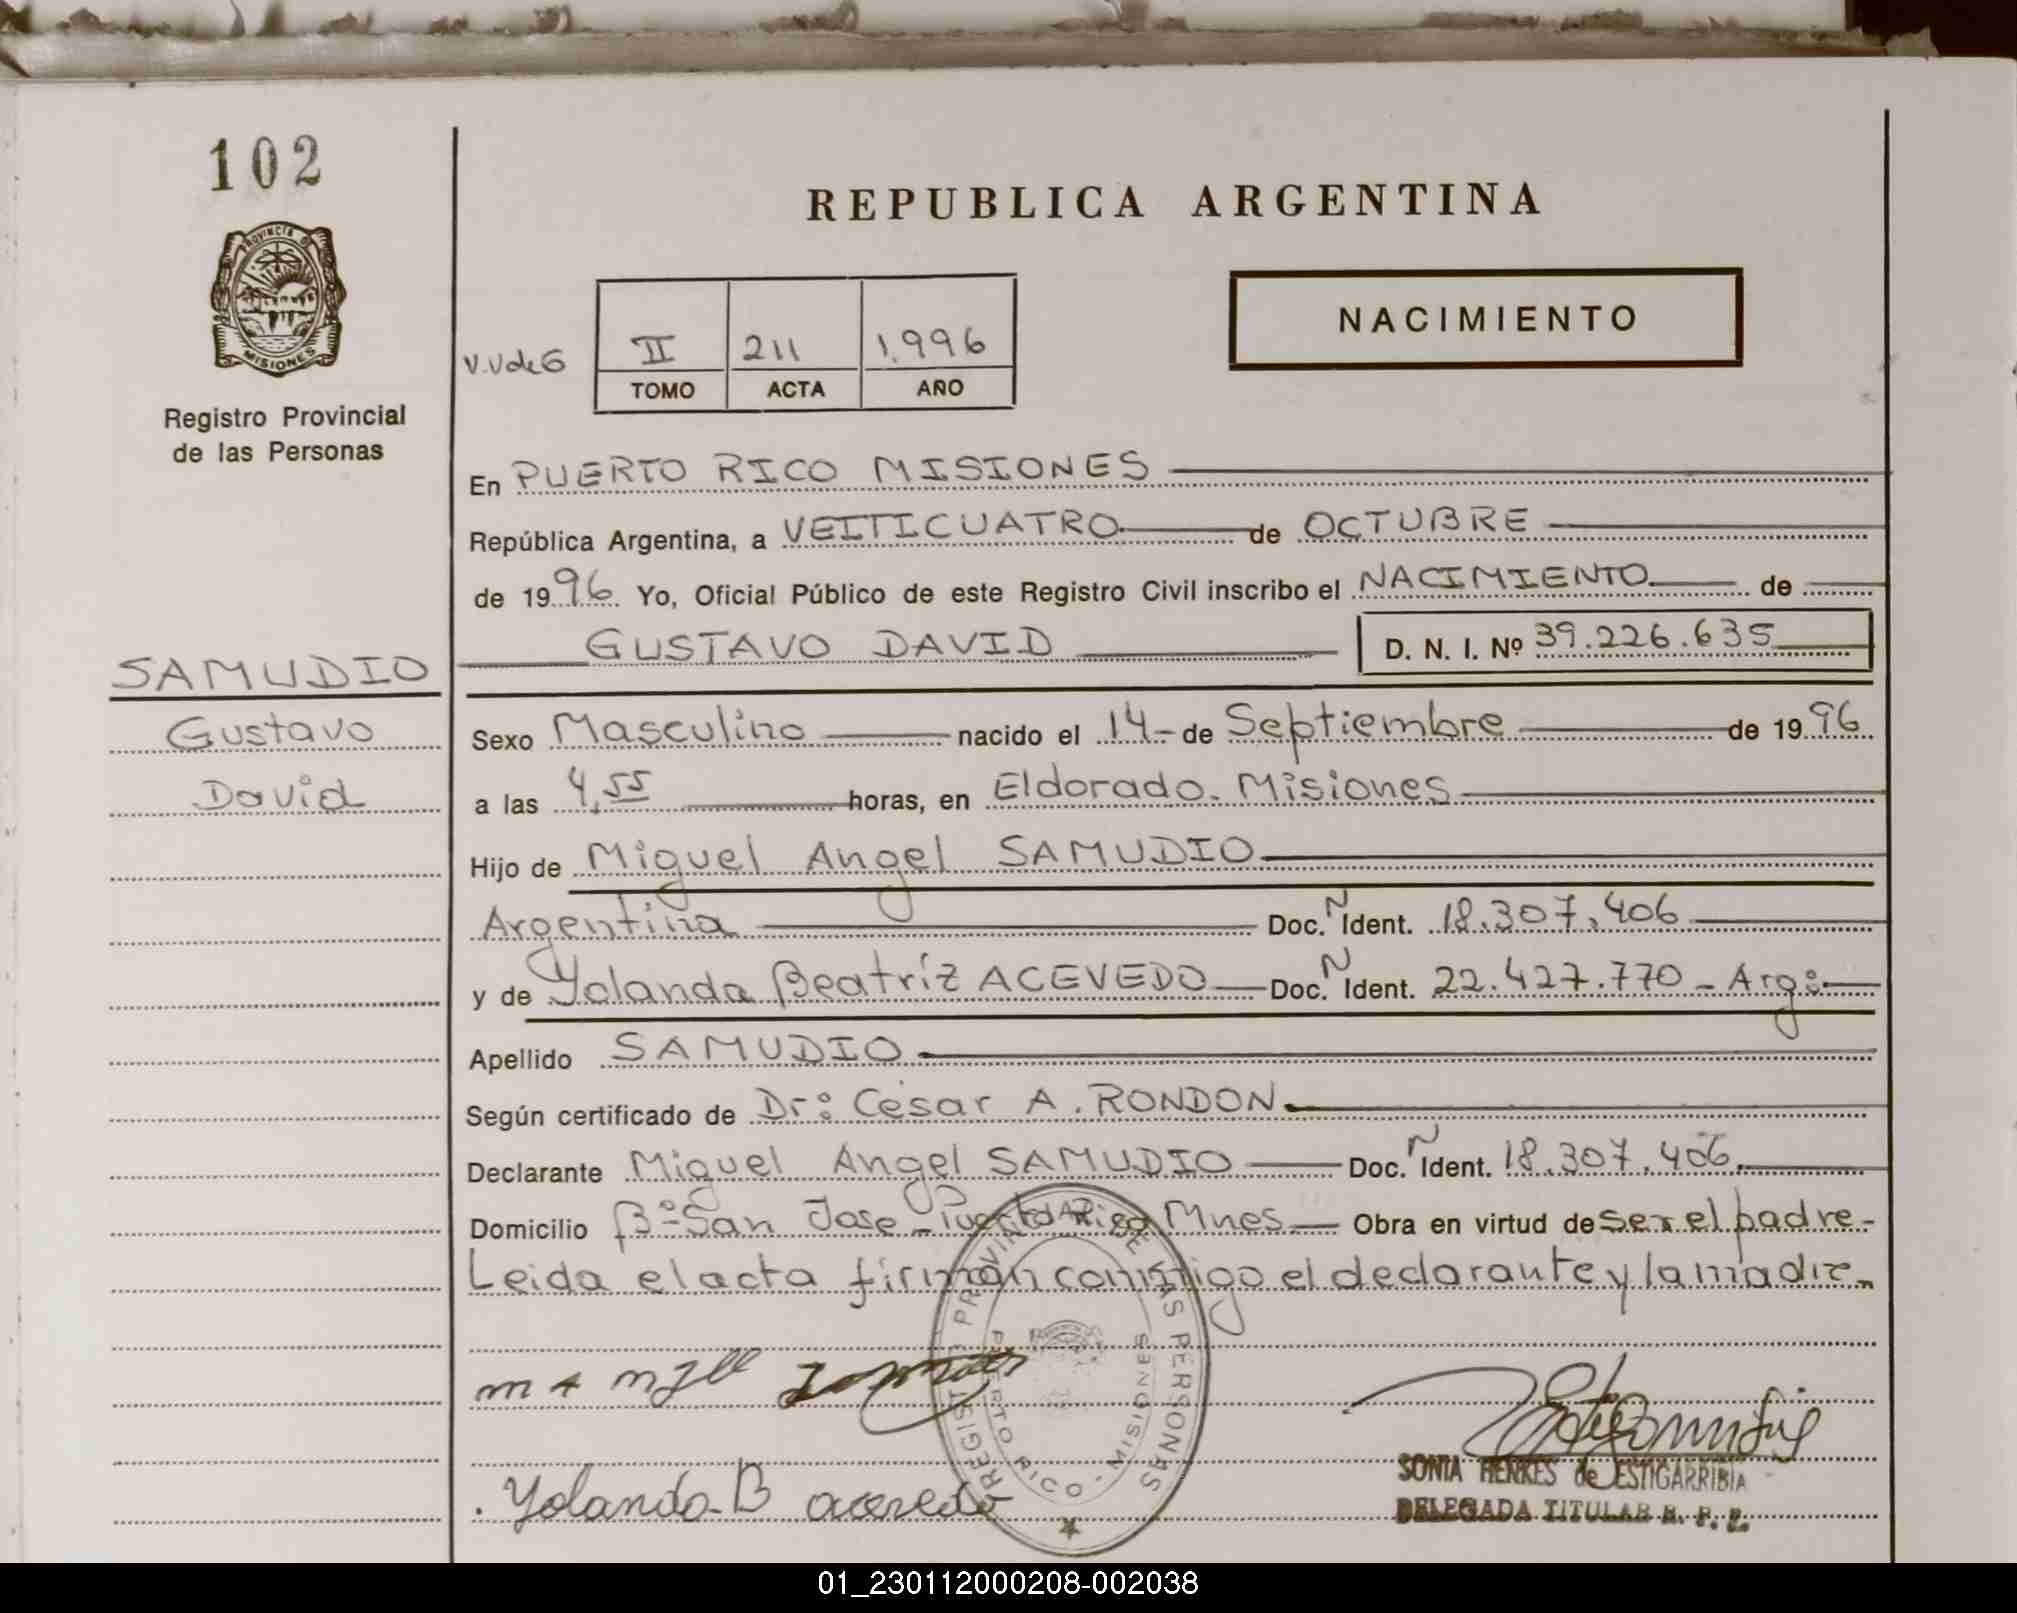 102
PROVINCIA DE
MISIONES
Registro Provincial
de las Personas
REPUBLICA ARGENTINA
NACIMIENTO
V.V de G II 211 1.996
TOMO ACTA AÑO
En PUERTO RICO MISIONES
República Argentina, a VEITICUATRO de OCTUBRE
de 1996 Yo, Oficial Público de este Registro Civil inscribo el NACIMIENTO de
GUSTAVO DAVID D. N. I. Nº 39.226.635
SAMUDIO
Gustavo
David
Sexo Masculino nacido el 14- de Septiembre de 1996
a las 4,55 horas, en Eldorado. Misiones
Hijo de Miguel Angel SAMUDIO
Argentina Doc. N Ident. 18.307.406
y de Yolanda Beatríz ACEVEDO Doc. N Ident. 22.427.770 - Arg:
Apellido SAMUDIO
Según certificado de Dr: César A. RONDON
Declarante Miguel Angel SAMUDIO Doc. N Ident. 18.307.406
Domicilio Bº San Jose - Puerto Rico Mnes Obra en virtud de ser el padre-
Leida el acta firman conmigo el declarante y la madre
REGISTRO PROVINCIAL DE LAS PERSONAS
PUERTO RICO - MISIONES
Yolanda B acevedo
SONIA HENKES de ESTIGARRIBIA
DELEGADA TITULAR R. P. P.
01_230112000208-002038